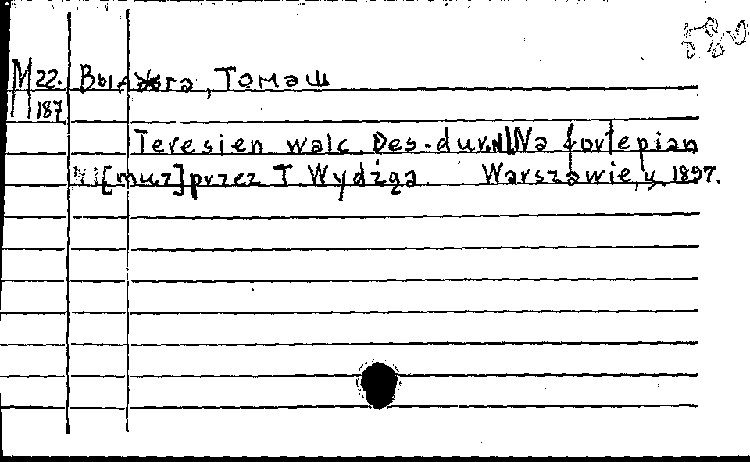 580
M 22. Выджга, Томаш
187
Teresien walc. Des-dur. Na fortepian
[muz] przez T. Wydżga. Warszawie, 1897.